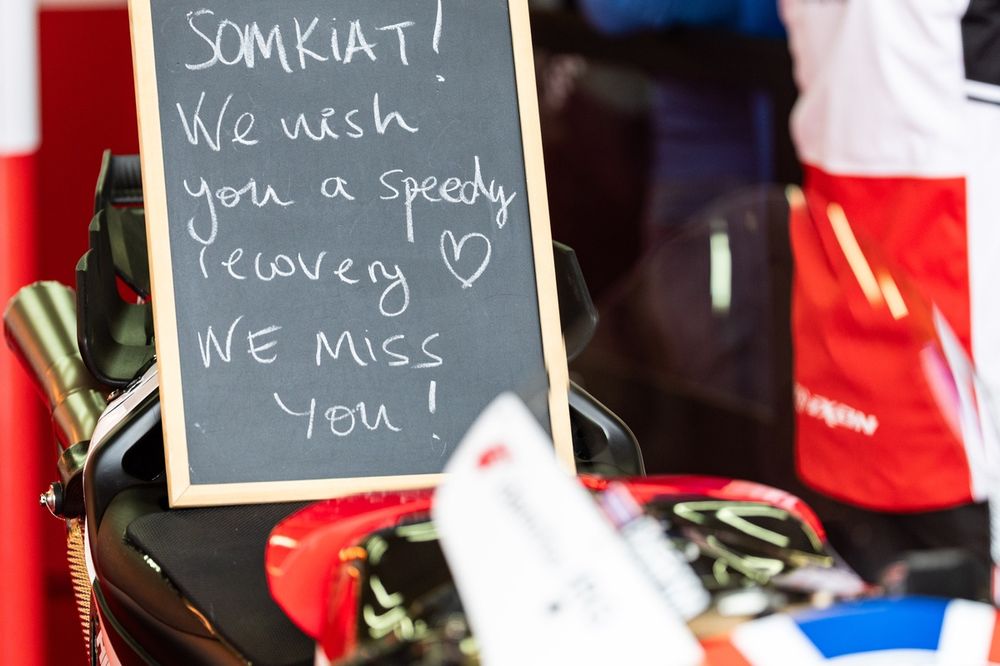 SOMKIAT!
We wish
you a speedy
recovery ♡
WE MISS
YOU!